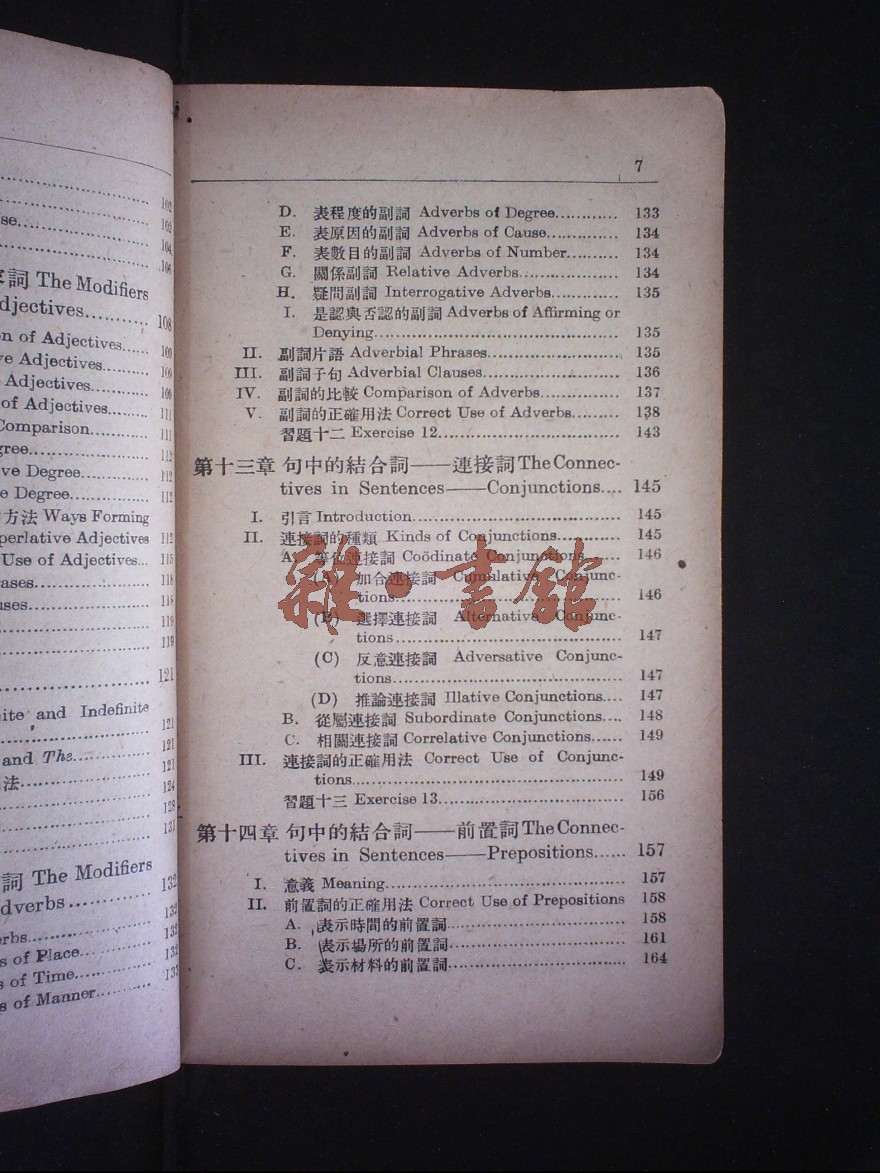 102
103
se 104
106
詞 The Modifiers
djectives 108
n of Adjectives 109
ve Adjectives 109
Adjectives 109
of Adjectives 111
Comparison 111
gree 112
ve Degree 112
e Degree 112
方法 Ways Forming
perlative Adjectives 112
Use of Adjectives 115
ases 118
uses 118
119
119
121
ite and Indefinite
121
and The 121
法 121
124
128
131
詞 The Modifiers
dverbs 132
132
rbs 132
s of Place 132
s of Time 132
s of Manner 133
7
D. 表程度的副詞 Adverbs of Degree............ 133
E. 表原因的副詞 Adverbs of Cause.............. 134
F. 表數目的副詞 Adverbs of Number.......... 134
G. 關係副詞 Relative Adverbs.................. 134
H. 疑問副詞 Interrogative Adverbs............. 135
I. 是認與否認的副詞 Adverbs of Affirming or
Denying.............................. 135
II. 副詞片語 Adverbial Phrases........................ 135
III. 副詞子句 Adverbial Clauses........................ 136
IV. 副詞的比較 Comparison of Adverbs.............. 137
V. 副詞的正確用法 Correct Use of Adverbs......... 138
習題十二 Exercise 12................................ 143
第十三章 句中的結合詞——連接詞 The Connec-
tives in Sentences——Conjunctions.... 145
I. 引言 Introduction.................................... 145
II. 連接詞的種類 Kinds of Conjunctions............ 145
A. 等位連接詞 Coödinate Conjunctions....... 146
(A) 加合連接詞 Cumulative Conjunc-
tions.................................... 146
(B) 選擇連接詞 Alternative Conjunc-
tions.................................... 147
(C) 反意連接詞 Adversative Conjunc-
tions.................................... 147
(D) 推論連接詞 Illative Conjunctions.... 147
B. 從屬連接詞 Subordinate Conjunctions.... 148
C. 相關連接詞 Correlative Conjunctions...... 149
III. 連接詞的正確用法 Correct Use of Conjunc-
tions............................................ 149
習題十三 Exercise 13................................ 156
第十四章 句中的結合詞——前置詞 The Connec-
tives in Sentences——Prepositions...... 157
I. 意義 Meaning.......................................... 157
II. 前置詞的正確用法 Correct Use of Prepositions 158
A. 表示時間的前置詞.............................. 158
B. 表示場所的前置詞.............................. 161
C. 表示材料的前置詞.............................. 164
雜·書館